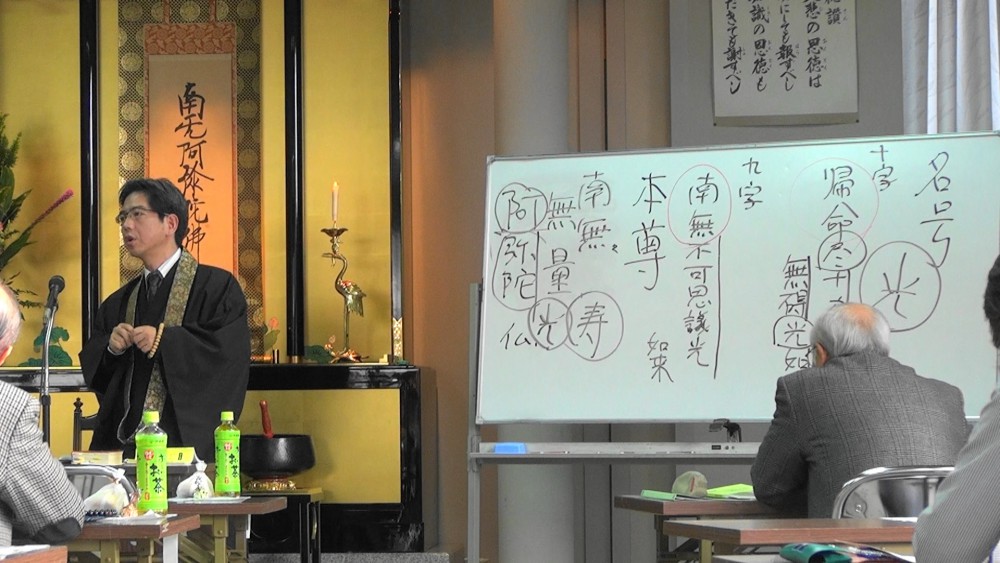 恩徳讃
悲の恩徳は
にしても報ずべし
識の恩徳も
だきても謝すべし
名号
光
十字
帰命尽十方
無碍光如
九字
南無不可思議光
如来
本尊
南無
無量寿
光
阿弥陀仏
南无阿弥陀佛
お〜いお茶